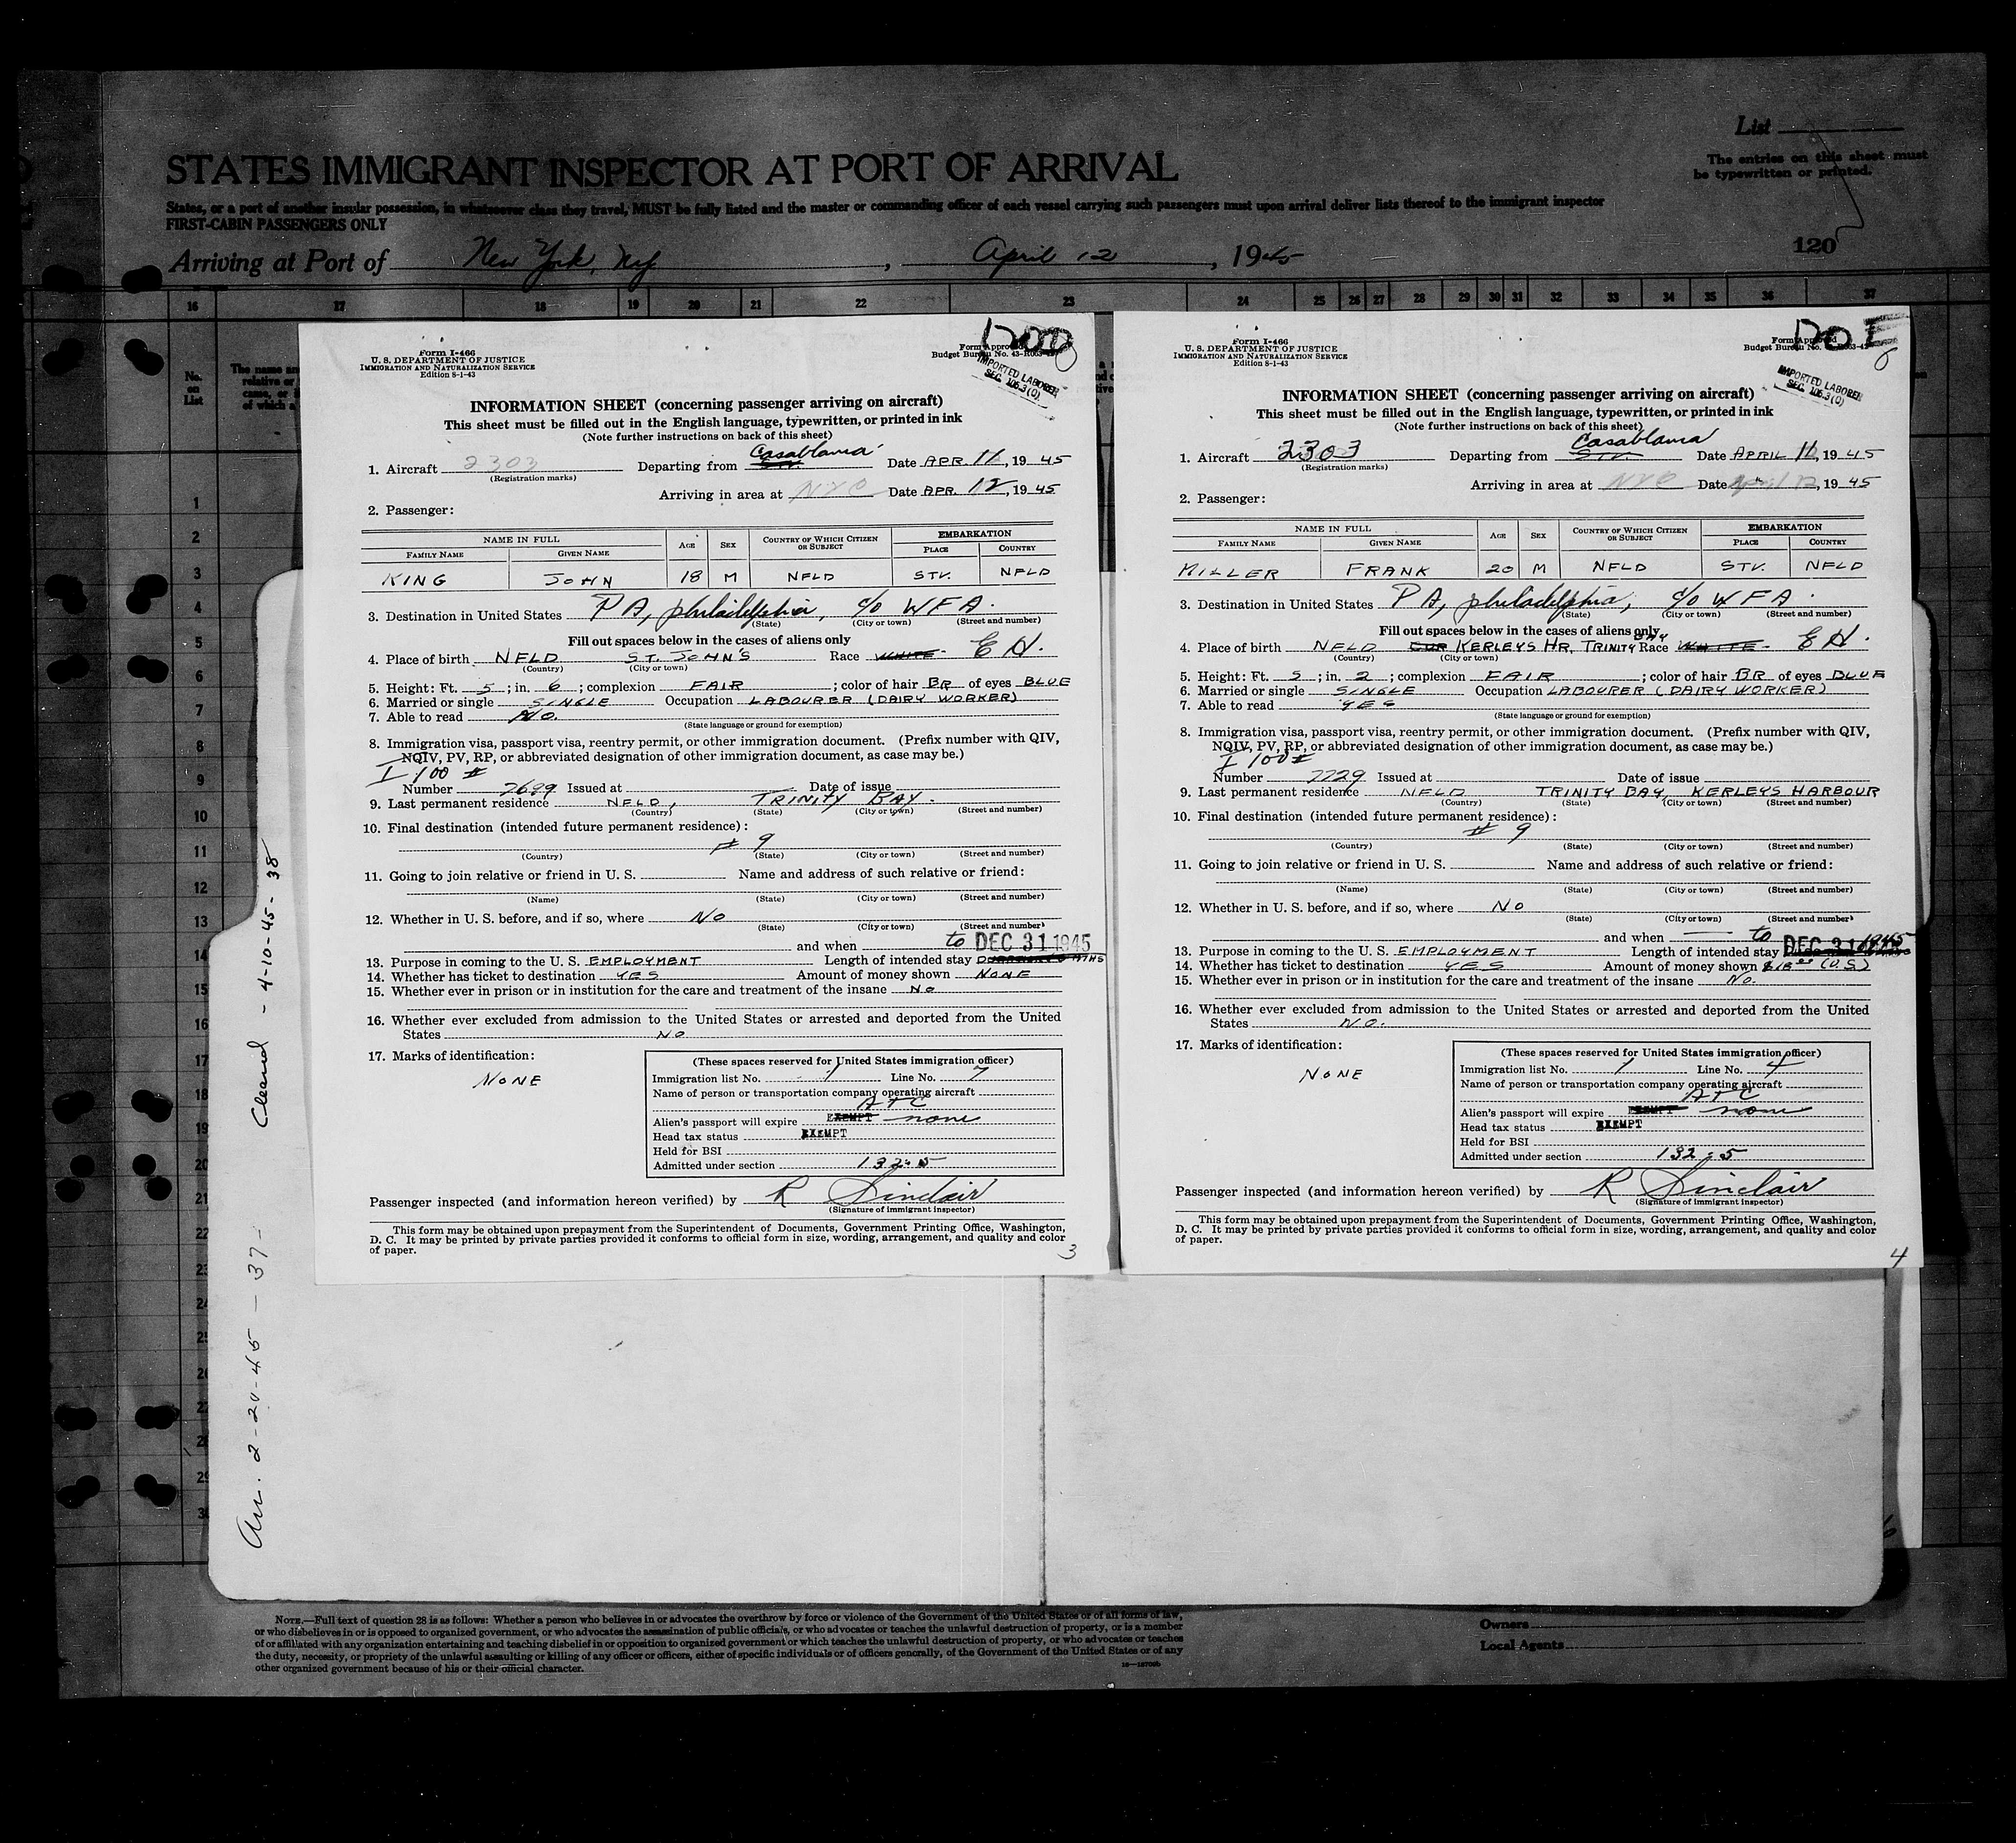 List
The entries on this sheet must
be typewritten or printed.
STATES IMMIGRANT INSPECTOR AT PORT OF ARRIVAL
States, or a port of another insular possession, in whatsoever class they travel, MUST be fully listed and the master or commanding officer of each vessel carrying such passengers must upon arrival deliver lists thereof to the immigrant inspector
FIRST-CABIN PASSENGERS ONLY
120
Arriving at Port of New York, NY, April 12, 1945
16 17 18 19 20 21 22 23 24 25 26 27 28 29 30 31 32 33 34 35 36 37
No.
on
List
1
2
3
4
5
6
7
8
9
10
11
12
13
14
15
16
17
18
19
20
21
22
23
24
Form I-466
U. S. DEPARTMENT OF JUSTICE
IMMIGRATION AND NATURALIZATION SERVICE
Edition 8-1-43
IMPORTED LABORER
SEC. 106.3(O)
INFORMATION SHEET (concerning passenger arriving on aircraft)
This sheet must be filled out in the English language, typewritten, or printed in ink
(Note further instructions on back of this sheet)
1. Aircraft 2303 Departing from Casablanca Date APR 11, 1945
(Registration marks)
Arriving in area at NYC Date APR. 12, 1945
2. Passenger:
NAME IN FULL AGE SEX COUNTRY OF WHICH CITIZEN OR SUBJECT EMBARKATION
FAMILY NAME GIVEN NAME PLACE COUNTRY
KING JOHN 18 M NFLD STV. NFLD
3. Destination in United States PA, philadelphia, c/o WFA.
(State) (City or town) (Street and number)
Fill out spaces below in the cases of aliens only
4. Place of birth NFLD ST. JOHN'S Race WHITE. E H.
(Country) (City or town)
5. Height: Ft. 5; in. 6; complexion FAIR; color of hair BR of eyes BLUE
6. Married or single SINGLE Occupation LABOURER (DAIRY WORKER)
7. Able to read NO.
(State language or ground for exemption)
8. Immigration visa, passport visa, reentry permit, or other immigration document. (Prefix number with QIV,
NQIV, PV, RP, or abbreviated designation of other immigration document, as case may be.)
I 100 #
Number 7699 Issued at Date of issue
9. Last permanent residence NFLD, TRINITY BAY.
(Country) (State) (City or town) (Street and number)
10. Final destination (intended future permanent residence):
# 9
(Country) (State) (City or town) (Street and number)
11. Going to join relative or friend in U. S. Name and address of such relative or friend:
(Name) (State) (City or town) (Street and number)
12. Whether in U. S. before, and if so, where NO
(State) (City or town) (Street and number)
and when to DEC 31 1945
13. Purpose in coming to the U. S. EMPLOYMENT Length of intended stay
14. Whether has ticket to destination YES Amount of money shown NONE
15. Whether ever in prison or in institution for the care and treatment of the insane NO
16. Whether ever excluded from admission to the United States or arrested and deported from the United
States NO
17. Marks of identification:
NONE
(These spaces reserved for United States immigration officer)
Immigration list No. 1 Line No. 7
Name of person or transportation company operating aircraft
ATC
Alien's passport will expire EXEMPT none
Head tax status EXEMPT
Held for BSI
Admitted under section 132.5
Passenger inspected (and information hereon verified) by R Sinclair
(Signature of immigrant inspector)
This form may be obtained upon prepayment from the Superintendent of Documents, Government Printing Office, Washington,
D. C. It may be printed by private parties provided it conforms to official form in size, wording, arrangement, and quality and color
of paper.
3
Form I-466
U. S. DEPARTMENT OF JUSTICE
IMMIGRATION AND NATURALIZATION SERVICE
Edition 8-1-43
IMPORTED LABORER
SEC. 106.3(O)
INFORMATION SHEET (concerning passenger arriving on aircraft)
This sheet must be filled out in the English language, typewritten, or printed in ink
(Note further instructions on back of this sheet)
1. Aircraft 2303 Departing from Casablanca STV. Date APRIL 11, 1945
(Registration marks)
Arriving in area at NYC Date April 12, 1945
2. Passenger:
NAME IN FULL AGE SEX COUNTRY OF WHICH CITIZEN OR SUBJECT EMBARKATION
FAMILY NAME GIVEN NAME PLACE COUNTRY
MILLER FRANK 20 M NFLD STV. NFLD
3. Destination in United States PA, philadelphia, c/o WFA.
(State) (City or town) (Street and number)
Fill out spaces below in the cases of aliens only
4. Place of birth NFLD KERLEYS HR, TRINITY BAY Race WHITE. E H.
(Country) (City or town)
5. Height: Ft. 5; in. 2; complexion FAIR; color of hair BR of eyes BLUE
6. Married or single SINGLE Occupation LABOURER (DAIRY WORKER)
7. Able to read YES
(State language or ground for exemption)
8. Immigration visa, passport visa, reentry permit, or other immigration document. (Prefix number with QIV,
NQIV, PV, RP, or abbreviated designation of other immigration document, as case may be.)
I 100 #
Number 7729 Issued at Date of issue
9. Last permanent residence NFLD TRINITY BAY, KERLEYS HARBOUR
(Country) (State) (City or town) (Street and number)
10. Final destination (intended future permanent residence):
# 9
(Country) (State) (City or town) (Street and number)
11. Going to join relative or friend in U. S. Name and address of such relative or friend:
(Name) (State) (City or town) (Street and number)
12. Whether in U. S. before, and if so, where NO
(State) (City or town) (Street and number)
and when to DEC 31 1945
13. Purpose in coming to the U. S. EMPLOYMENT Length of intended stay
14. Whether has ticket to destination YES Amount of money shown (U.S)
15. Whether ever in prison or in institution for the care and treatment of the insane No.
16. Whether ever excluded from admission to the United States or arrested and deported from the United
States NO.
17. Marks of identification:
NONE
(These spaces reserved for United States immigration officer)
Immigration list No. 1 Line No. 4
Name of person or transportation company operating aircraft
ATC
Alien's passport will expire EXEMPT none
Head tax status EXEMPT
Held for BSI
Admitted under section 132.5
Passenger inspected (and information hereon verified) by R Sinclair
(Signature of immigrant inspector)
This form may be obtained upon prepayment from the Superintendent of Documents, Government Printing Office, Washington,
D. C. It may be printed by private parties provided it conforms to official form in size, wording, arrangement, and quality and color
of paper.
4
Arr. 2-24-45-37- Cleared - 4-10-45-38
NOTE.—Full text of question 28 is as follows: Whether a person who believes in or advocates the overthrow by force or violence of the Government of the United States or of all forms of law,
or who disbelieves in or is opposed to organized government, or who advocates the assassination of public officials, or who advocates or teaches the unlawful destruction of property, or is a member
of or affiliated with any organization entertaining and teaching disbelief in or opposition to organized government or which teaches the unlawful destruction of property, or who advocates or teaches
the duty, necessity, or propriety of the unlawful assaulting or killing of any officer or officers, either of specific individuals or of officers generally, of the Government of the United States or of any
other organized government because of his or their official character.
Owners
Local Agents